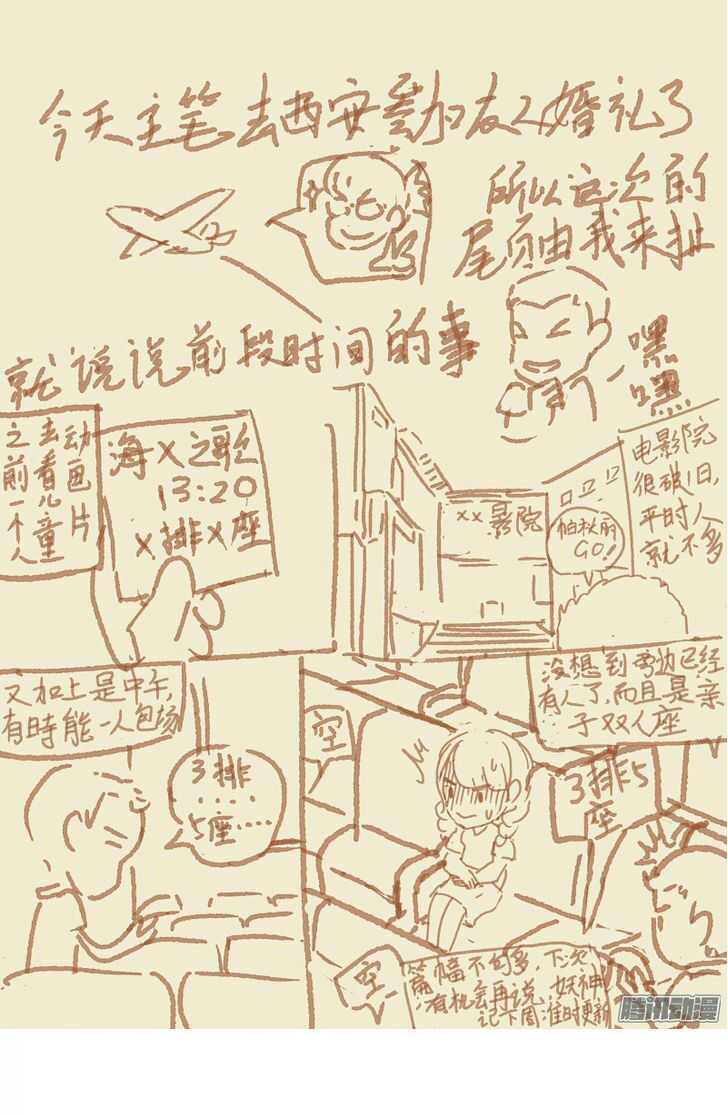 今天主笔去西安参加友人婚礼了
所以这次的
尾页由我来扯
就说说前段时间的事
嘿
嘿
之前一个人
去看儿童
动画片
海X之歌
13:20
X排X座
XX影院
帕秋丽
GO!
电影院
很破旧,
平时人
就不多
又加上是中午,
有時能一人包场
3排
....
5座....
空
没想到旁边已经
有人了,而且是亲
子双人座
3排5
座
空
篇幅不句多,下次
有机会再说,妖神
记下周准时更新
腾讯动漫